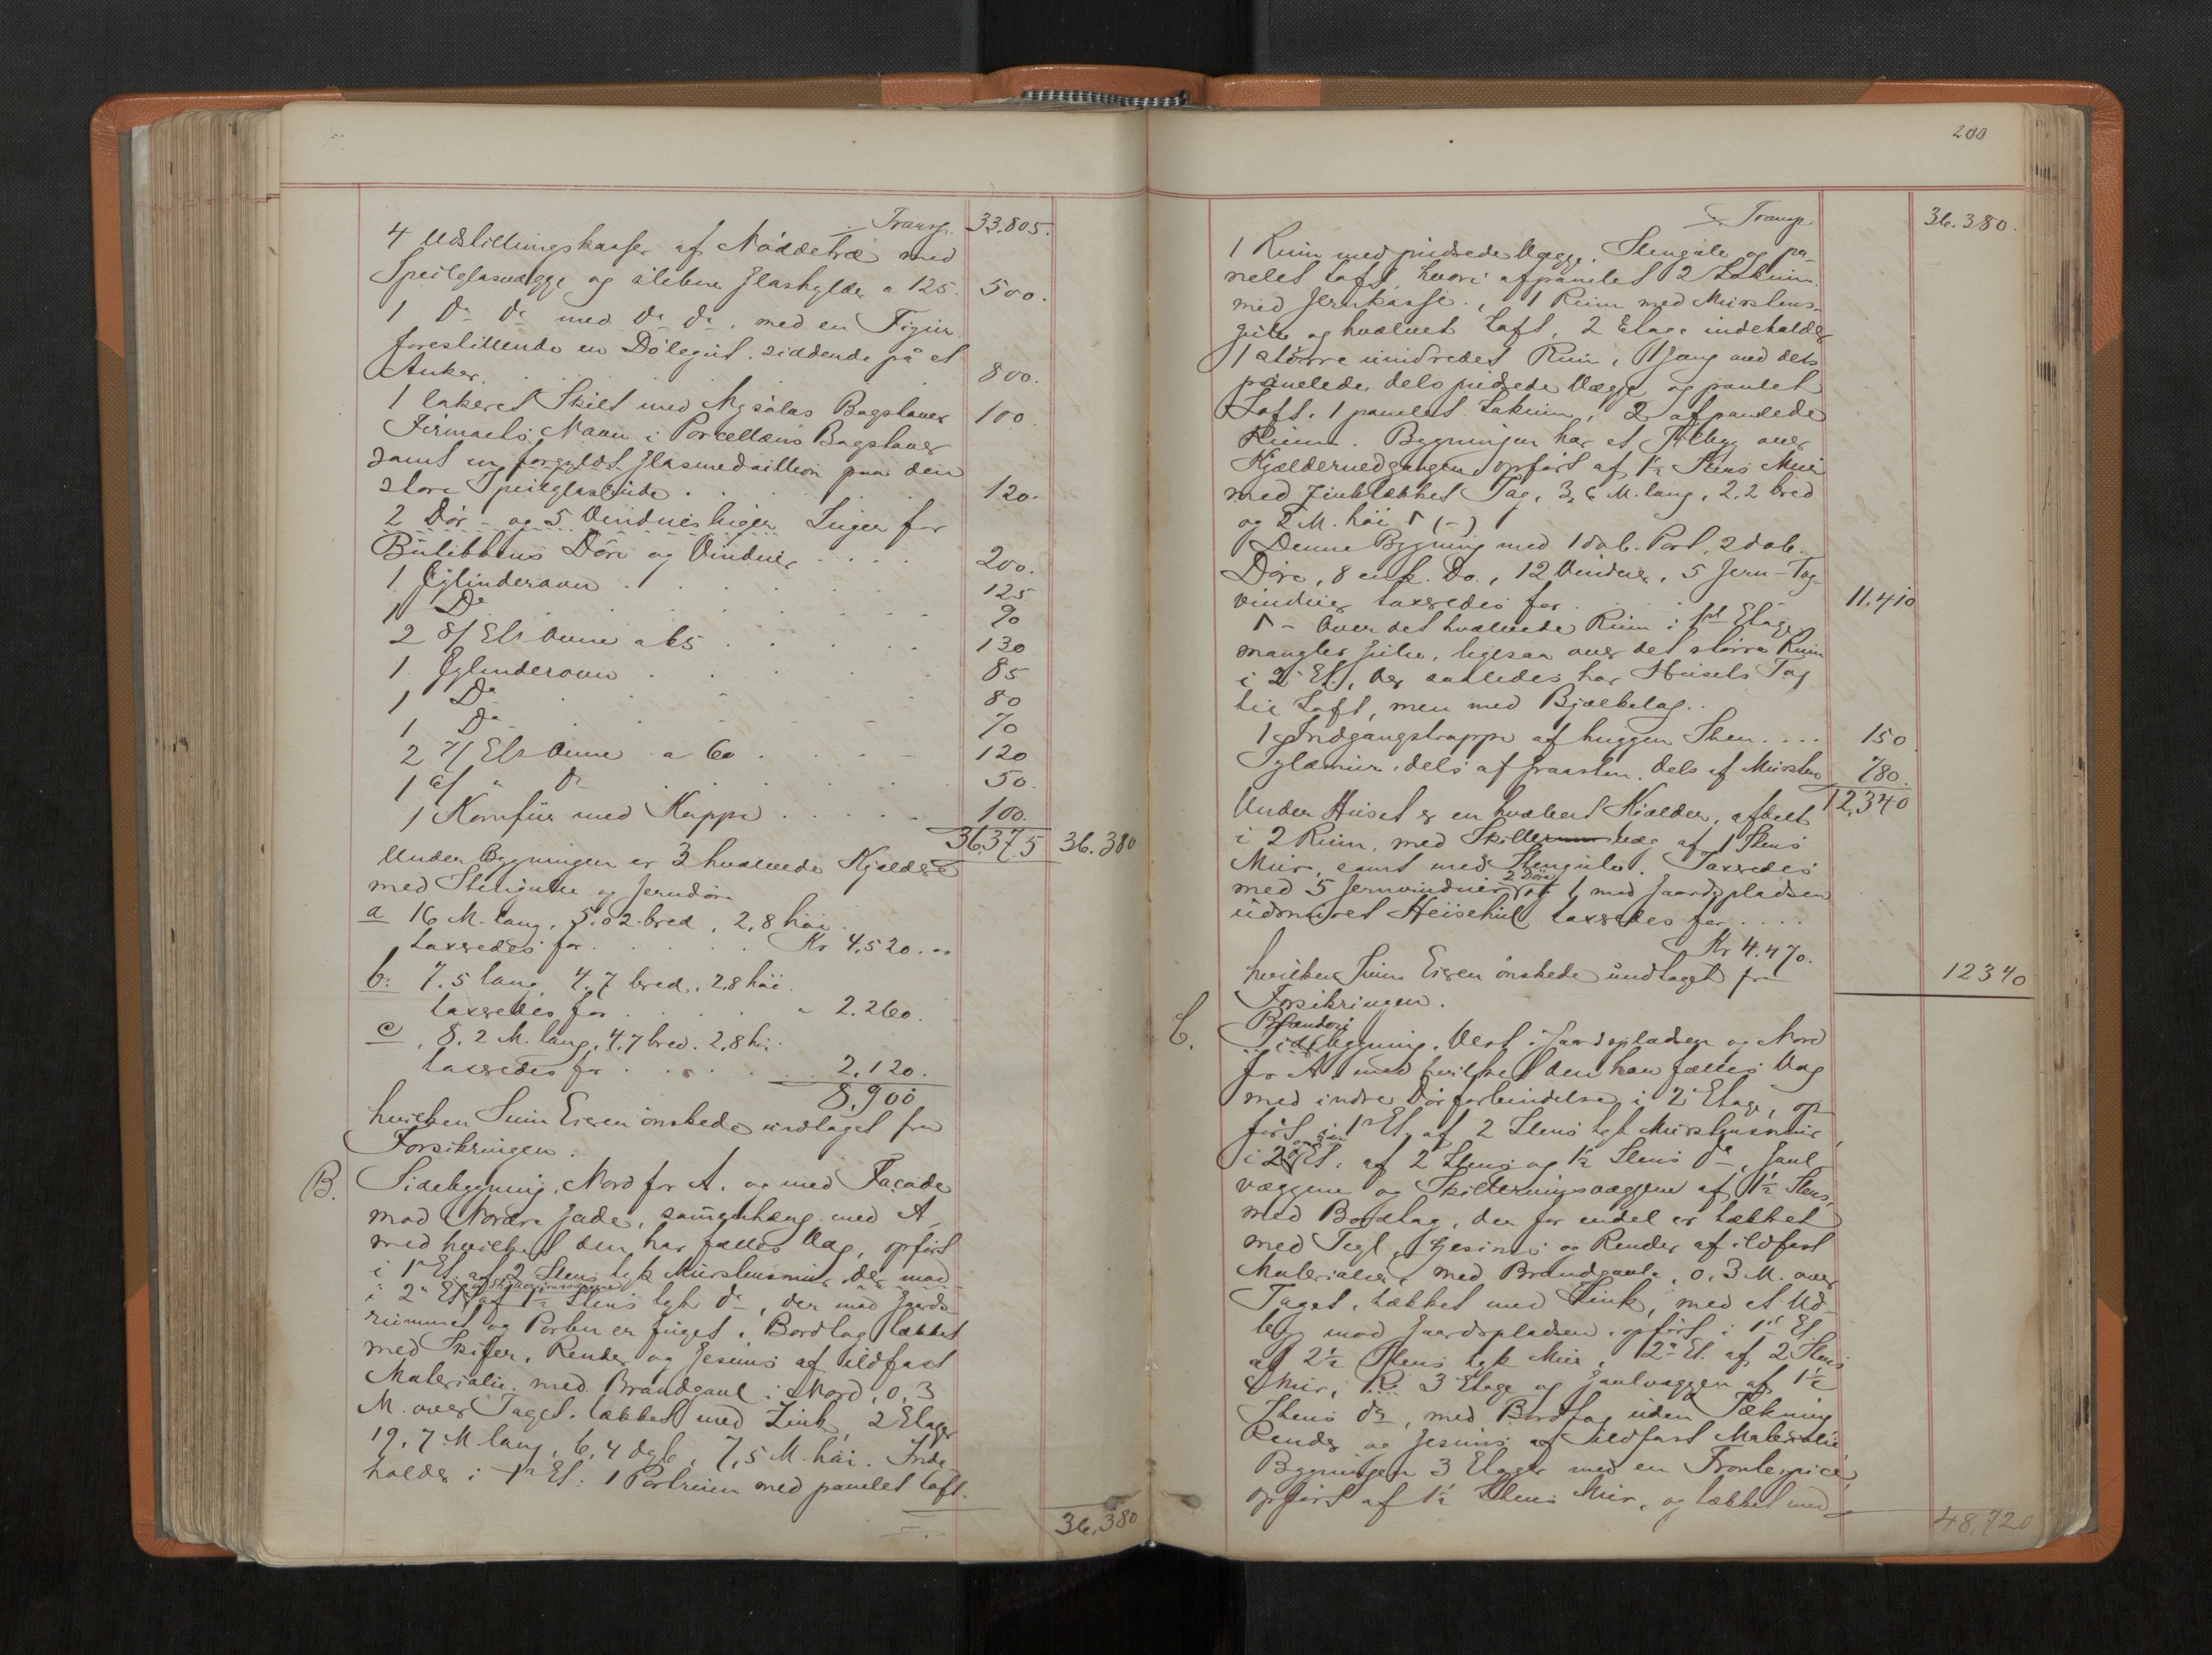 Transp. 33.805.
4 Udstillingskasser af Nøddetræ med
Speilglasvægge og slebne Glashylder a 125. 500.
1 Do Do med Do Do, med en Figur
forestillende en Dölegut siddende på et
Anker. 800.
1 lakeret Skilt med Bogstaver 100
Firmaets Navn i Porcellæns Bogstaver
samt en forgyldt Glasmedaillion paa den
store Speilglasrude 120.
2 Dör- og 5 Vindues Luger for
Butikkens Döre og Vinduer 200.
1 Cylinderovn 125
1 Do 90
2 8/ Etrs Ovne a 65 130
1 Cylinderovn 85
1 Do 80
1 Do 70
2 7/ Etrs Ovne a 60 120
1 6/ " Do 50.
1 Komfur med Kappe 100.
36.375 36.380
Under Bygningen er 3 hvælvede Kjeldere
med Stengulve og Jerndöre
a 16 M. lang, 5.02 bred, 2,8 höi
taxeredes for Kr 4.520. "
b. 7.5 lang 4.7 bred, 2,8 höi.
taxeredes for " 2.260.
c, 8.2 M. lang, 4.7 bred. 2,8 höi
taxeredes for 2.120.
8.900
hvilken Sum Eieren önskede undtaget fra
Forsikringen.
B. Sidebygning, Nord for A. og med Façade
mod Nordre Gade, sammenhæng. med A
med hvilket den har fælles Væg, opført
i 1ste Et. af 2 Stens tyk Murstensmur, der mod
i 2n Et. af 1½ Stens tyk Do, der mod Gaards-
rummet og Porten er fuget, Bordtag tækket
med Skifer, Render og Gesims af ildfast
Materialie, med Brandgavl i Nord, 0,3
M. over Taget, tækket med Zink, 2 Etager
19,7 M lang, 6,4 dyb, 7,5 M. höi. Inde-
holder i 1ste Et: 1 Portrum med panelet Loft.
36.380
200
Transp. 36.380.
1 Rum med pudsede Vægge, Stengulv og pa-
nelet Loft, hvori afpanelet 2 Lokum
med Jernkasse, 1 Rum med Murstens-
gulv og hvælvet Loft, 2 Etage indeholder
1 större uindredet Rum, 1 Gang med dels
panelede, dels pudsede Vægge og panelet
Loft, 1 panelet Lokum, 2 afpanelede
Rum. Bygningen har et Tilbyg over
Kjældernedgangen opført af 1½ Stens Mur
med Zinktækket Tag, 3,6 M. lang, 2.2 bred
og 2 M. höi Γ (-)
Denne Bygning med 1 dob. Port, 2 dob.
Döre, 8 enk. Do., 12 Vinduer, 5 Jern-Tag-
vinduer taxeredes for 11.410
Γ - Over det hvælvede Rum i 1ste Etage
mangler Gulv, ligesaa over det större Rum
i 2 Et., der saaledes har Husets Tag
til Loft, men med Bjælkelag.
1 Indgangstrappe af huggen Sten.... 150
Sylæmur, dels af Graasten, dels af Mursten 780.
12.340
Under Huset er en hvælvet Kjælder, afdelt
i 2 Rum, med Skillevæg af 1 Stens
Mur, samt med Stengulv. Taxeredes
med 5 Jernvinduer, 2 Döre og 1, mod Gaardspladsen
udmuret Heisehul taxeredes for....
Kr 4.470.
hvilken Sum Eieren önskede undtaget fra 12340
Forsikringen.
C. Brænderi
Sidebygning, Vest i Gaardspladsen og Nord
for A. med hvilket den har fælles Væg
med indre Dörforbindelse i 2 Etage, op-
fört i 1ste Et. af 2 Stens tyk Murstensmur,
i 2 Et. af 2 Stens og 1½ Stens Do, Gavl-
væggene og Skillerumsvæggene af 1½ Stens,
med Bordtag, der for endel er tækket
med Tegl, Gesims og Render af ildfast
Materialie, med Brandgavle, 0.3 M. over
Taget, tækket med Zink, med et Ud-
byg mod Gaardspladsen, opfört i 1ste Et.
af 2½ Stens tyk Mur, 2n Et. af 2 Stens
Mur, 3 Etage og Gavlvæggen af 1½
Stens Do, med Bordtag uden Tækning
Render og Gesims af ildfast Materialie,
Bygningen 3 Etager med en Frontespice,
opfört af 1½ Stens Mur, og tækket med
48.720